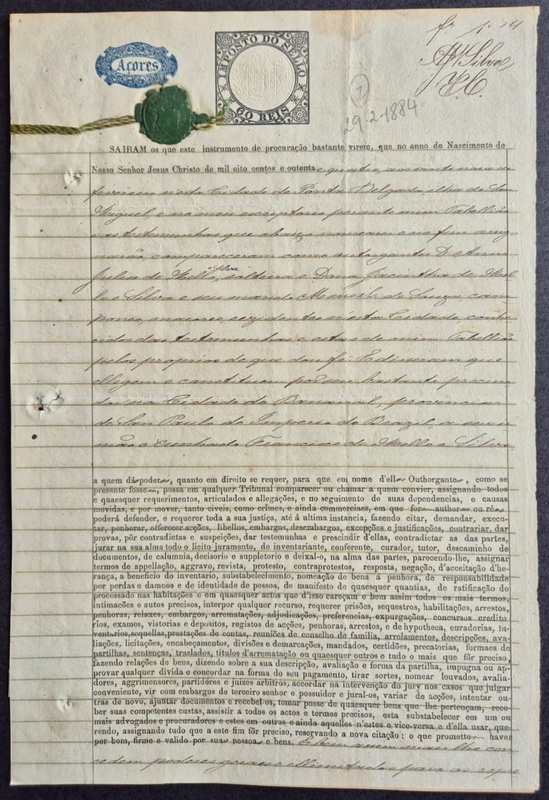 Açores
IMPOSTO DO SELLO
60 REIS
Silva
1
29-2-1884
SAIBAM os que este instrumento de procuração bastante virem, que no anno do Nascimento de
Nosso Senhor Jesus Christo de mil oito centos e oitenta e quatro, aos vinte nove de
fevereiro n'esta Cidade de Ponta Delgada, ilha de São
Miguel, e no meu escriptorio perante mim Tabellião
e as testemunhas que abaixo nomeare e no fim assig
narão, compareceram como outorgantes D. Anna
Julia de Mello, solteira e Dona Jacintha de Mel
lo e Silva e seu marido Manoel de Souza, cam
ponez, maiores, rezidentes n'esta Cidade, conhe
cidos das testemunhas e estas de mim Tabellião
pelos proprios de que dou fé. E disseram que
elegem e constituem por seu bastante procura
dor na Cidade do Bananal, provincia
de San Paulo do Imperio do Brazil, a seu
irmão e cunhado Francisco de Mello e Silva,
a quem dá poderes, quanto em direito se requer, para que em nome d'ella Outhorgante, como se
presente fosse, possa em qualquer Tribunal comparecer ou chamar a quem convier, assignando todos
e quaesquer requerimentos, articulados e allegações, e no seguimento de suas dependencias, e causas
movidas, e por mover, tanto civeis, como crimes, e ainda commerciaes, em que fôr author ou réu
poderá defender, e requerer toda a sua justiça, até á ultima instancia, fazendo citar, demandar, execu-
tar, penhorar, offerecer acções, libellos, embargos, desembargos, excepções e justificações, contrariar, dar
provas, pôr contradictas e suspeições, dar testemunhas e prescindir d'ellas, contradictar as das partes,
jurar na sua alma todo o licito juramento, de inventariante, conferente, curador, tutor, descaminho de
documentos, de calumnia, decisorio e suppletorio e deixal-o, na alma das partes, parecendo-lhe, assignar
termos de appellação, aggravo, revista, protesto, contraprotestos, resposta, negação, d'acceitação d'he-
rança, a beneficio do inventario, substabelecimento, nomeação de bens á penhora, de responsabilidade
por perdas e damnos e de identidade de pessoa, de manifesto de quaesquer quantias, de ratificação do
processado nas habitações e em quaesquer actos que d'isso careçam e bem assim todos os mais termos,
intimações e autos precisos, interpor qualquer recurso, requerer prisões, sequestros, habilitações, arrestos,
penhoras, relaxer, embargos, arrematações, adjudicações, preferencias, expurgações, concursos creditò
rios, exames, vistorias e depositos, registos de acções, penhoras, arrestos, e de hypotheca, curaderias, in-
ventarios, sequellas, prestações de contas, reuniões de conselho de familia, arrolamentos, descripções, ava-
liações, licitações, encabeçamentos, divisões e demarcações, mandados, certidões, precatorias, formaes de
partilhas, sentenças, traslados, titulos d'arrematação ou quaesquer outros e tudo o mais que fôr preciso,
fazendo relações de bens, dizendo sobre a sua descripção, avaliação e forma da partilha, impugna ou ap-
provar qualquer divida e concordar na forma do seu pagamento, tirar sortes, nomear louvados, avalia-
dores, aggrimensores, partidores e juizes arbitros, accordar na intervenção do jury nos casos que julgar
conveniente, vir com embargos de terceiro senhor e possuidor e jural-os, variar de acções, intentar ou-
tras de novo, ajuntar documentos e recebel-os, tomar posse de quaesquer bens que lhe pertençam, rece-
ber suas competentes custas, assistir a todos os actos e termos precisos, esta substabelecer em um ou
mais advogados e procuradores e estes em outros e ainda aquelles n'estes e vice-versa e d'ella usar, que-
rendo, assignando tudo que a este fim fôr preciso, reservando a nova citação: o que promettem haver
por bom, firme e valido por suas pessoas e bens. E bem assim mais lhe con
cedem poderes geraes e illimitados para